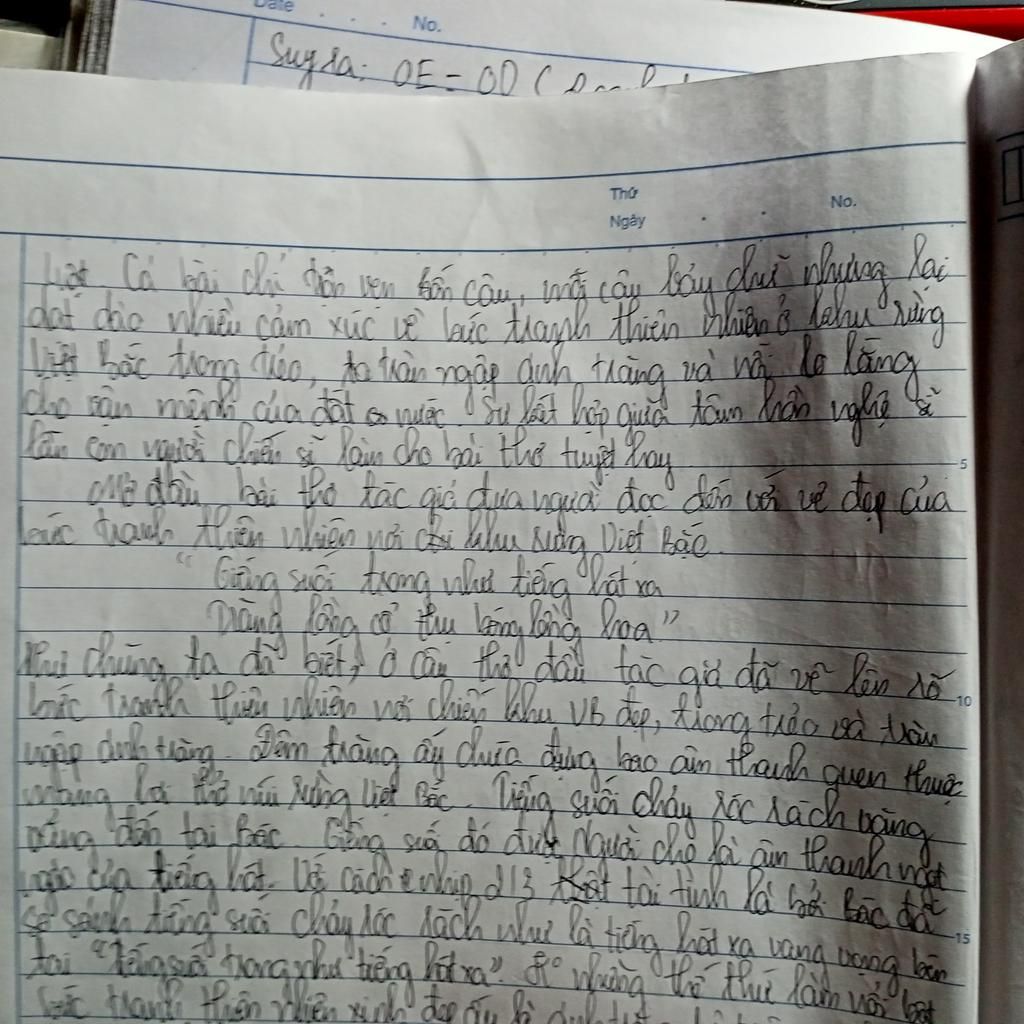 Date . . . No.
Suy ra: OE = OD (
Thứ
Ngày . . No.
Cả bài chỉ vỏn vẹn bốn câu, mỗi câu bảy chữ nhưng lại
dạt dào nhiều cảm xúc về bức tranh thiên nhiên ở khu rừng
Việt Bắc trong trẻo, tràn ngập ánh trăng và nỗi lo lắng
cho vận mệnh của đất nước. Sự kết hợp giữa tâm hồn nghệ sĩ
lẫn con người chiến sĩ làm cho bài thơ tuyệt hay
5
Mở đầu bài thơ tác giả đưa người đọc đến với vẻ đẹp của
bức tranh thiên nhiên nơi khu rừng Việt Bắc.
"Tiếng suối trong như tiếng hát xa
Trăng lồng cổ thụ bóng lồng hoa"
Như chúng ta đã biết, ở câu thơ đầu tác giả đã vẽ lên rõ
10
bức tranh thiên nhiên nơi chiến khu VB đẹp, trong trẻo và tràn
ngập ánh trăng. Đêm trăng ấy chứa đựng bao âm thanh quen thuộc
núi rừng Việt Bắc. Tiếng suối chảy róc rách văng
vẳng đến tai Bác. Tiếng suối đó được Người cho là âm thanh ngọt
ngào của tiếng hát. Với cách nhịp 2/1/3 tài tình là bởi Bác đã
so sánh tiếng suối chảy róc rách như là tiếng hát xa vang vọng bên
15
tai "Tiếng suối trong như tiếng hát xa". thứ làm nổi bật
bức tranh thiên nhiên xinh đẹp ấy là ánh